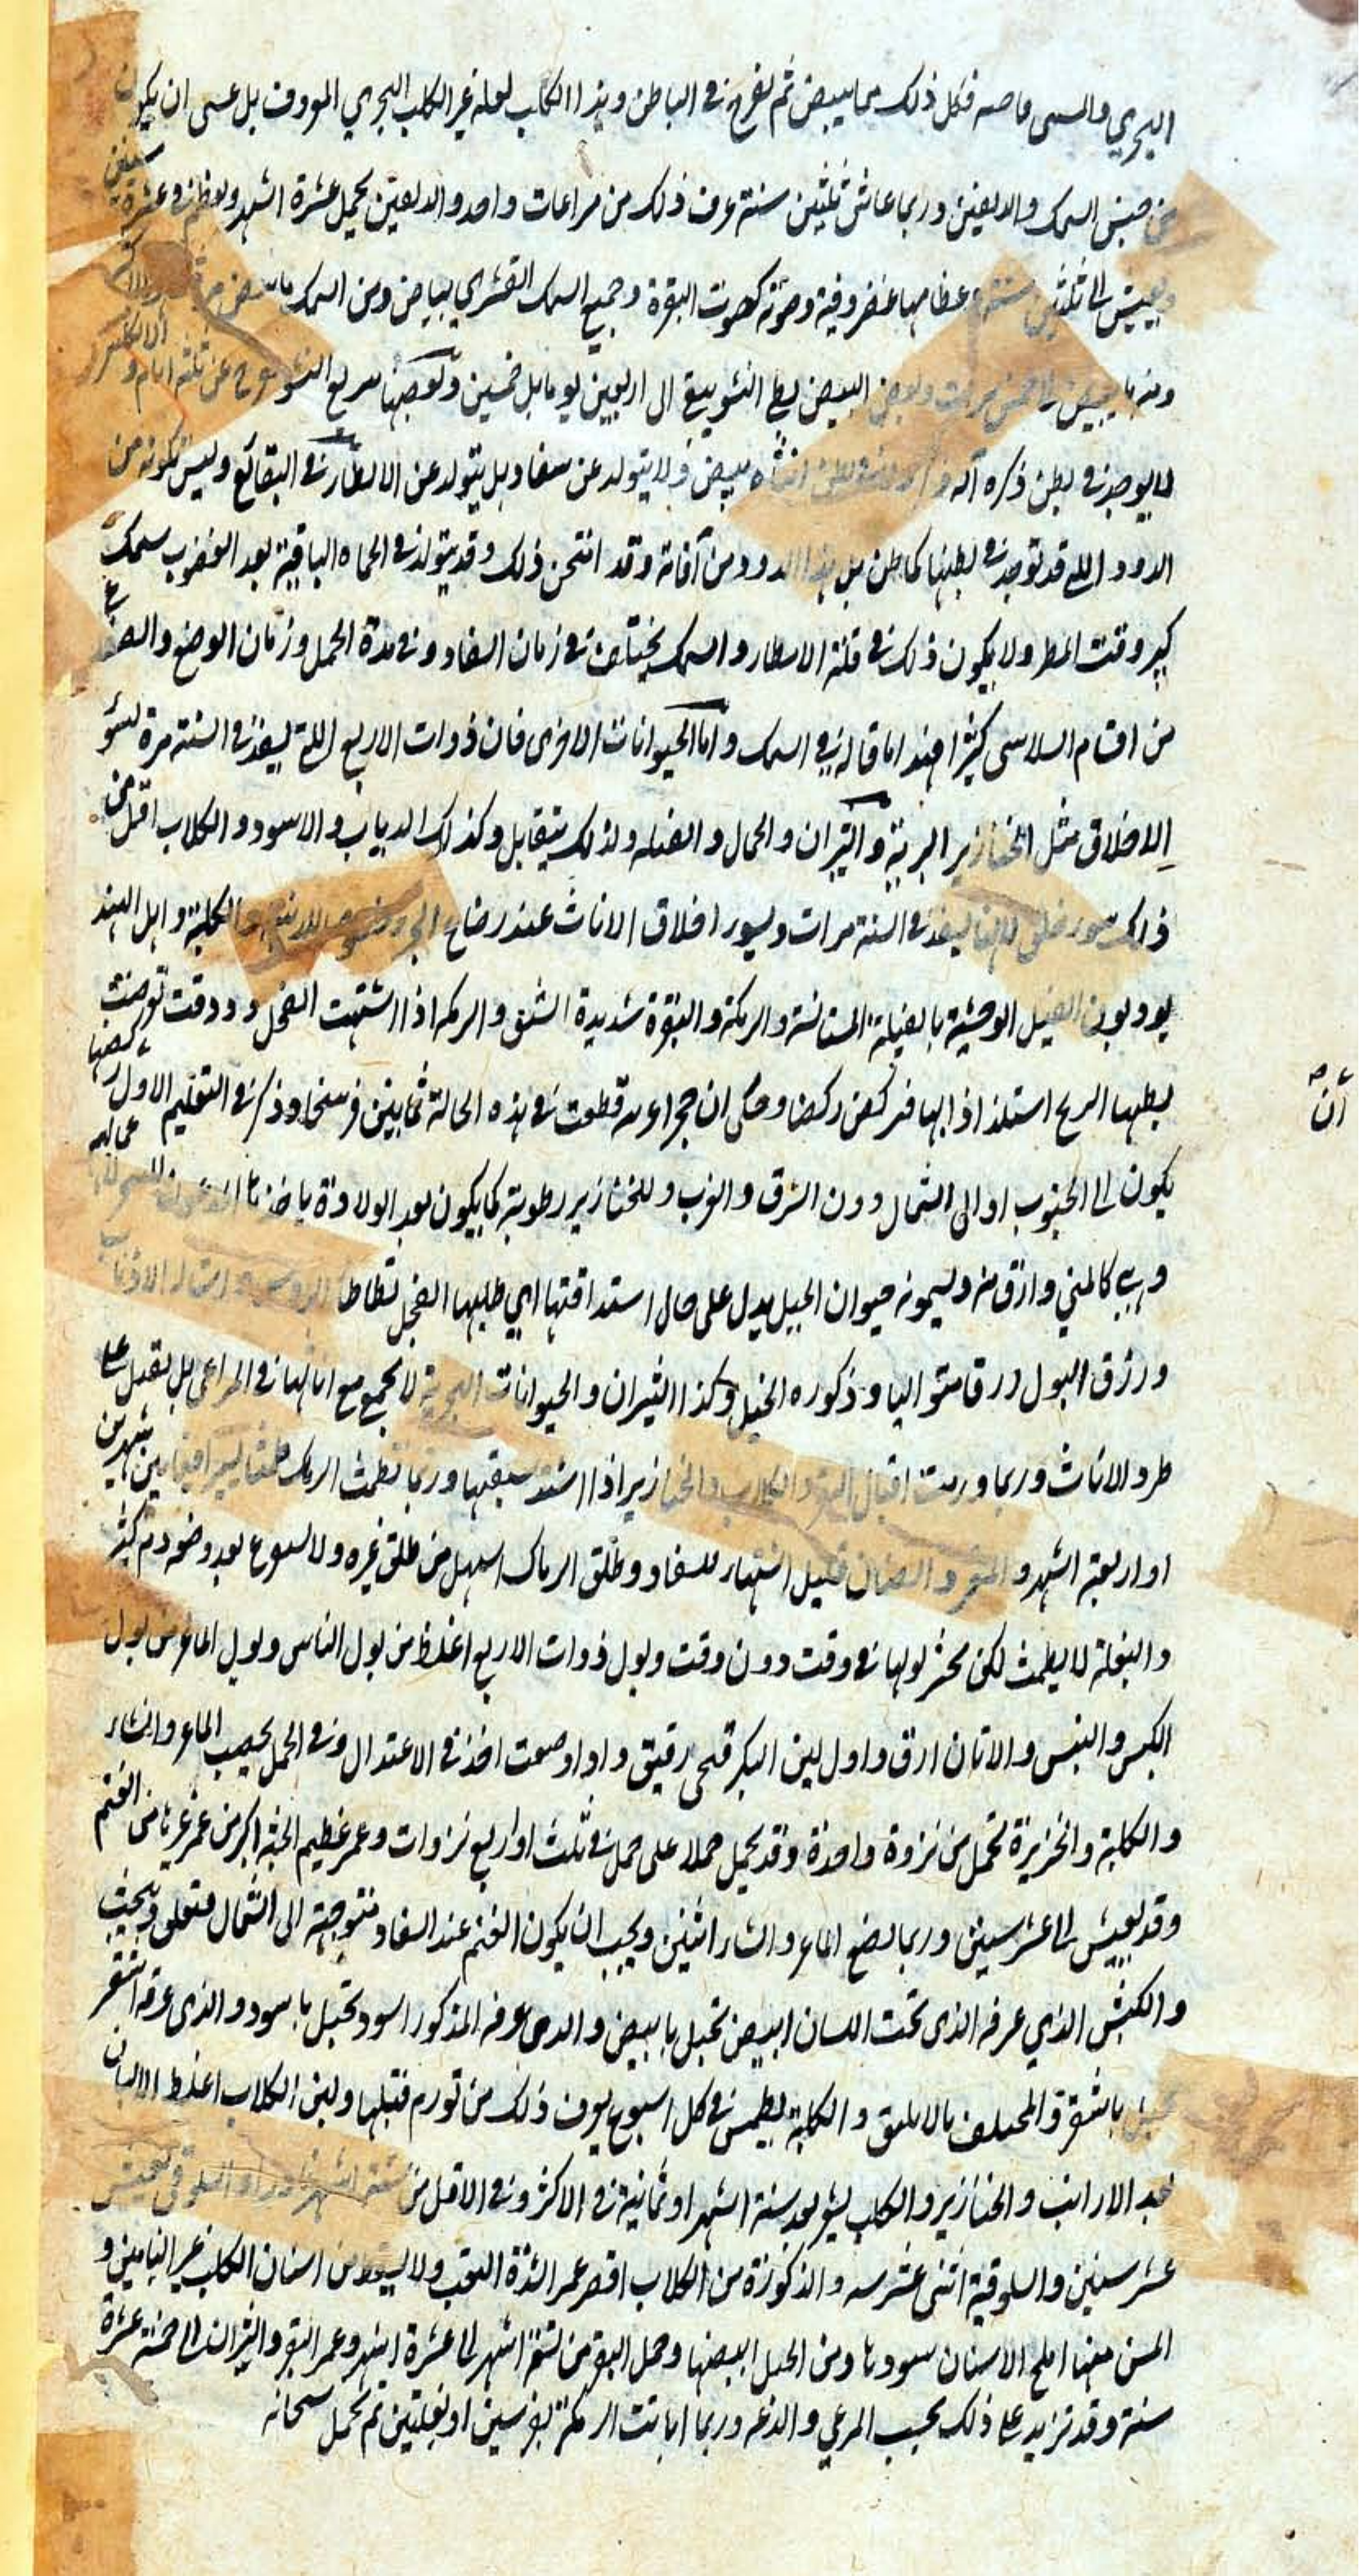 البحري والمسمى فاصه فكل ذلك مما يبيض ثم يفرخ في الباطن وهذا الكلب لعله غير الكلب البحري المعروف بل عسى ان يكون
من جنس السمك والدلفين وربما عاش ثلثين سنة عرف ذلك من مراعات واحد والدلفين يحمل عشرة اشهر ويعظم في عشر سنين
ويعيش الى ثلثين سنة وعظامها غضروفية وصوته كصوت البقرة وجميع السمك القشري يبياض ومن السمك ما يبيض مرة
ومنه ما يبيض الى خمس مرات وبعض البيض بطي النشو يبقى الى اربعين يوما بل خمسين وبعضها سريع النشو عن ثلثة ايام و
لا يوجد في بطن ذكره آلة ولا في بطن انثاه بيض ولا يتولد عن سفاد بل يتولد عن الامطار في البقائع وليس تكونه من
الدود اللتي قد توجد في بطنها كما ظن بل هذا الدود من آفاته وقد امتحن ذلك وقد يتولد في الحماه الباقية بعد النضوب سمك
كبير وقت المطر ولا يكون ذلك في قلة الامطار والسمك يختلف في زمان السفاد وفي مدة الحمل وزمان الوضع والصيد في
من اقسام السلاسى كثيرا هذا ما قاله في السمك واما الحيوانات الاخرى فان ذوات الاربع اللتي يسفد في السنة مرة لسؤ
الاخلاق مثل الخنازير البرية والثيران والجمال والفيله ولذلك يتقابل وكذلك الدياب والاسود والكلاب اقل من
ذلك سور خلق لانها يسفد في السنة مرات ويسور اخلاق الاناث عند رضاع الجرو الكلبة واهل الهند
يودبون الفيل الوحشية بالفيلة المستانسة والرمكة والبقرة شديدة الشبق والرمكه اذا اشتهت الفحل وودقت تعرضت
ببطنها الريح استلذاذا بها فتركض ركضا وحكى ان حجرا وعه قطعت في هذه الحالة ثمانين فرسخا وذكر في التعليم الاول ان ركضها
يكون الى الجنوب او الى الشمال دون الشرق والغرب وللخنازير رطوبة كما يكون بعد الولادة ياخذها
وهي كالمني وارق منه ويسمونه حيوان الجبل يدل على حال استداقتها اي طلبها الفحل تطاطا الروس وامتاله الاذناب
ورزق البول درقا متواليا وذكوره الخيل وكذا الثيران والحيوانات البحرية لا يجمع مع اناثها في المراعي بل يقبل على
طرد الاناث وربما وردت اقبال البقر والكلاب والخنازير اذا اشتد سبقها وربما تطمث الرمك طمثا يسيرا فيما بين شهرين
او اربعة اشهر والمعز والضان قليل اشتهار للسفاد وطلق الرماك اسهل من طلق غيره ولا سبوع بعد وضعه دم كثير
والبغلة لا يطمث لكن يخثر بولها في وقت دون وقت وبول ذوات الاربع اغلظ من بول الناس وبول الماعز من بول
الكبش والتيس والاتان ارق واول لبن البكر قيحي رقيق واذا وضعت اخذ في الاعتدال وفي الحمل يحسب الماعز والشاء
والكلبة والخنزيرة تحمل من نزوة واحدة وقد يحمل حملا على حمل في ثلث او اربع نزوات وعمر عظيم الجثة اكبر من عمر غيرها من الغنم
وقد يعيش الى عشر سنين وربما يضع الماعز والشاء اثنين ويجب ان يكون الغنم عند السفاد متوجهة الى الشمال فتعلق وتنجب
والكبش الذي عرفه الذي تحت اللسان ابيض تحبل بابيض والذى عرفه المذكور اسود تحبل باسود والذى عرفه اشقر
يحبل باشقر والمختلف بالابلق والكلبة يطمس في كل اسبوع يعرف ذلك من تورم قبلها ولبن الكلاب اغلظ الالبان
بعد الارانب والخنازير والكلب يشو بعد ستة اشهر او ثمانية في الاكثر وفي الاقل من ستة اشهر والسلوقي يعيش
عشر سنين والسلوقية اثنى عشر سنه والذكورة من الكلاب اقصر عمرا لشدة التعب ولا يسقط من اسنان الكلب غير النابين و
المسن منها املح الاسنان سودها ومن الخيل ابيضها وحمل البقر من تسعة اشهر الى عشرة اشهر وعمر البقر والثيران الى خمسة عشرة
سنة وقد تزيد على ذلك بحسب المرعي والدعه وربما اباتت الرمكة بفرسين او بغلتين ثم يحمل سبحانه
ان صح